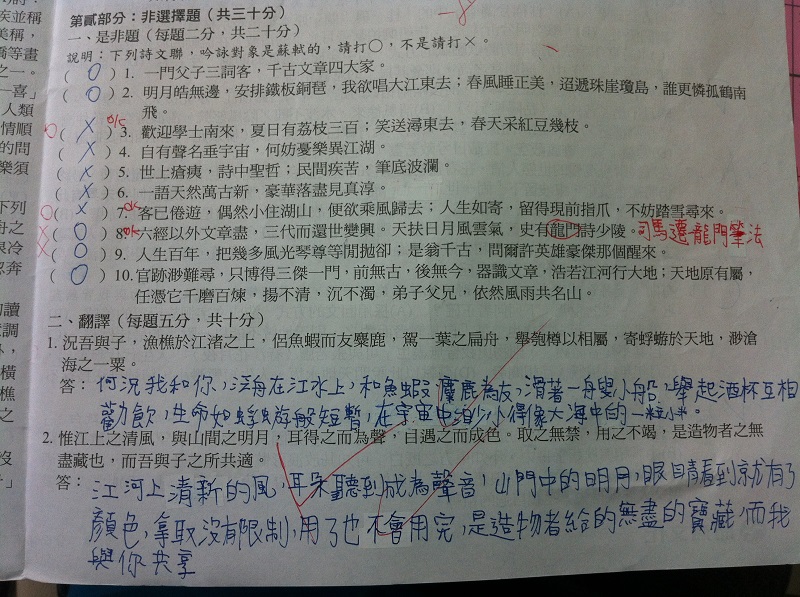 -8
第貳部分：非選擇題（共三十分）
一、是非題（每題二分，共二十分）
說明：下列詩文聯，吟詠對象是蘇軾的，請打○，不是請打×。
（○）1. 一門父子三詞客，千古文章四大家。
（○）2. 明月皓無邊，安排鐵板銅琶，我欲唱大江東去；春風睡正美，迢遞珠崖瓊島，誰更憐孤鶴南
飛。
○（×）3. 歡迎學士南來，夏日有荔枝三百；笑送潯東去，春天采紅豆幾枝。
（×）4. 自有聲名垂宇宙，何妨憂樂異江湖。
（×）5. 世上瘡痍，詩中聖哲；民間疾苦，筆底波瀾。
（×）6. 一語天然萬古新，豪華落盡見真淳。
○（×）7. 客已倦遊，偶然小住湖山，便欲乘風歸去；人生如寄，留得現前指爪，不妨踏雪尋來。
×（○）8. 六經以外文章盡，三代而還世變興。天扶日月風雲氣，史有龍門詩少陵。司馬遷龍門筆法
×（○）9. 人生百年，把幾多風光琴尊等閒拋卻；是翁千古，問爾許英雄豪傑那個醒來。
（○）10. 官跡渺難尋，只博得三傑一門，前無古，後無今，器識文章，浩若江河行大地；天地原有屬，
任憑它千磨百煉，揚不清，沉不濁，弟子父兄，依然風雨共名山。
二、翻譯（每題五分，共十分）
1. 況吾與子，漁樵於江渚之上，侶魚蝦而友麋鹿，駕一葉之扁舟，舉匏樽以相屬，寄蜉蝣於天地，渺滄
海之一粟。
答：何況我和你，泛舟在江水上，和魚蝦麋鹿為友，滑著一艘小船，舉起酒杯互相
勸飲，生命如蜉蝣般短暫，在宇宙中渺小得像大海中的一粒小米。
2. 惟江上之清風，與山間之明月，耳得之而為聲，目遇之而成色。取之無禁，用之不竭，是造物者之無
盡藏也，而吾與子之所共適。
答：江河上清新的風，耳朵聽到成為聲音，山門中的明月，眼睛看到就有了
顏色，拿取沒有限制，用了也不會用完，是造物者給的無盡的寶藏，而我
與你共享